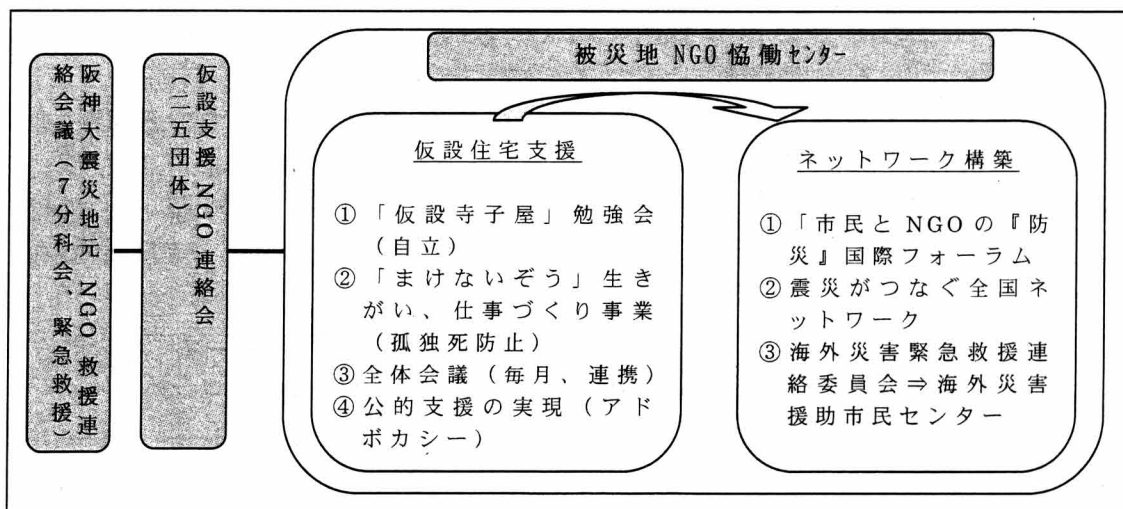 阪神大震災地元 NGO 救援連
絡会議（７分科会、緊急救援）
仮設支援 NGO 連絡会
（二五団体）
被災地 NGO 恊働センター
仮設住宅支援
①「仮設寺子屋」勉強会
（自立）
②「まけないぞう」生き
がい、仕事づくり事業
（孤独死防止）
③全体会議（毎月、連携）
④公的支援の実現（アド
ボカシー）
ネットワーク構築
①「市民と NGO の『防
災』国際フォーラム
②震災がつなぐ全国ネ
ットワーク
③海外災害緊急救援連
絡委員会⇒海外災害
援助市民センター